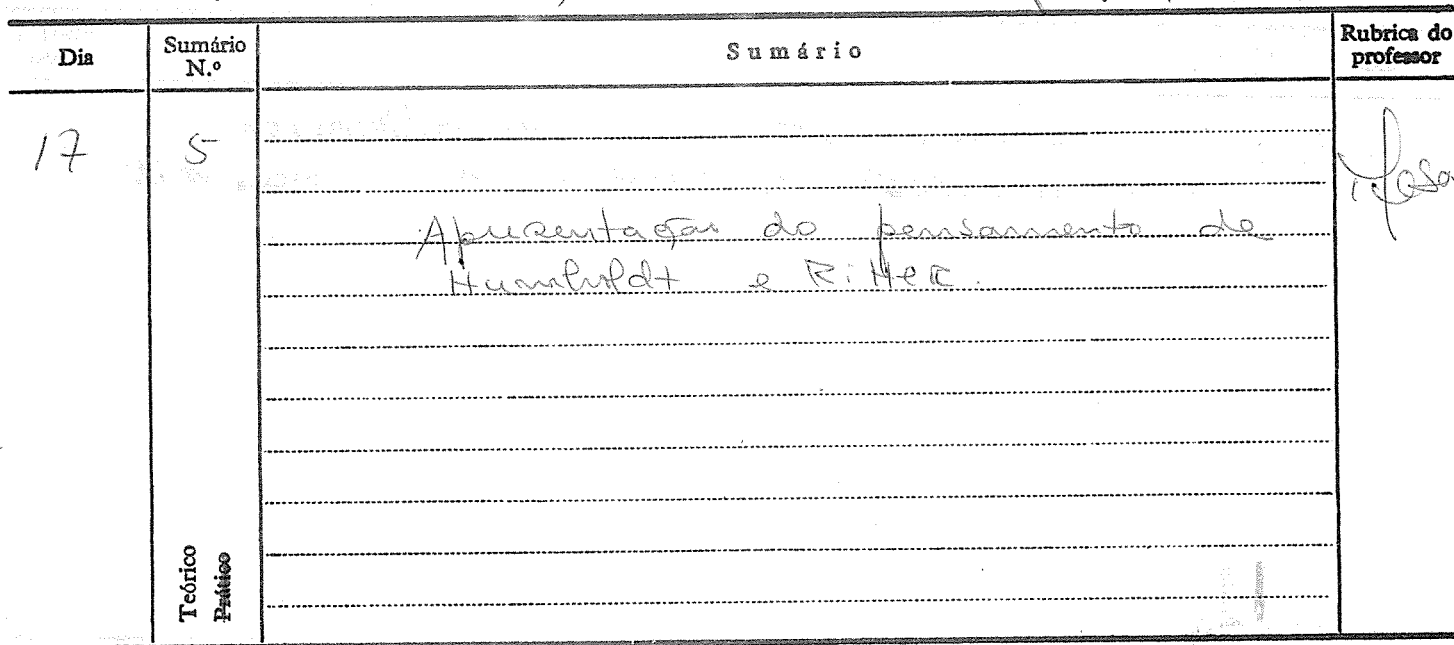 Dia
Sumário N.º
Sumário
Rubrica do professor
17
5
Apresentação do pensamento de
Humboldt e Ritter.
Teórico
Prático